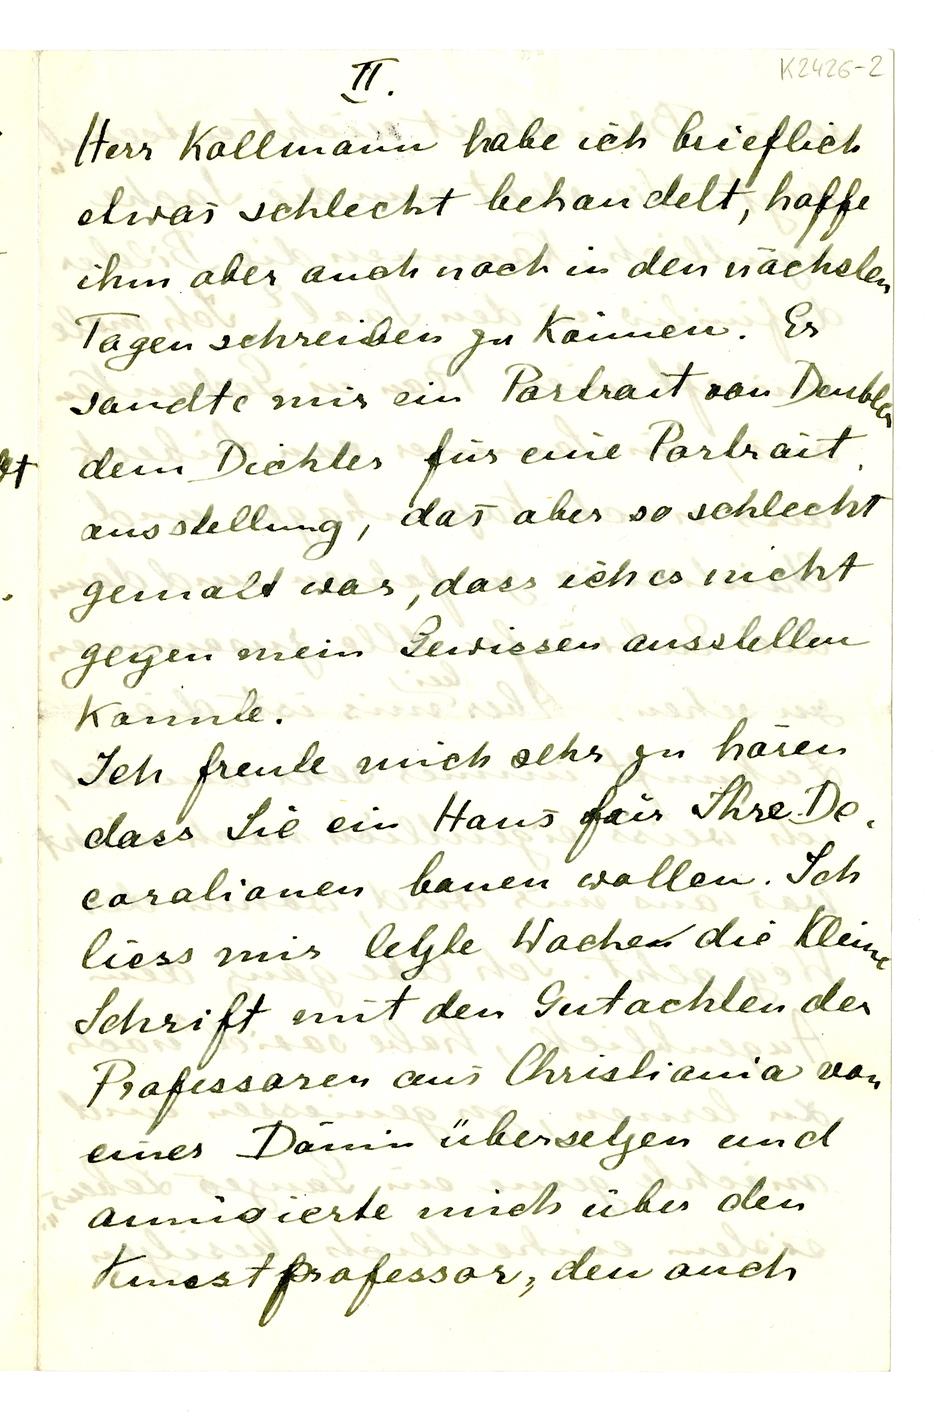 II.
K2426-2
Herr Kollmann habe ich brieflich
etwas schlecht behandelt, hoffe
ihm aber auch noch in den nächsten
Tagen schreiben zu können. Er
sandte mir ein Portrait von Deubler
dem Dichter für eine Portrait
ausstellung, das aber so schlecht
gemalt war, dass ich es nicht
gegen mein Gewissen ausstellen
konnte.
Ich freute mich sehr zu hören
dass Sie ein Haus für Ihre De-
corationen bauen wollen. Ich
liess mir letzte Woche die kleine
Schrift mit den Gutachten der
Professoren aus Christiania von
einer Dänin übersetzen und
amüsierte mich über den
Kunstprofessor, den auch